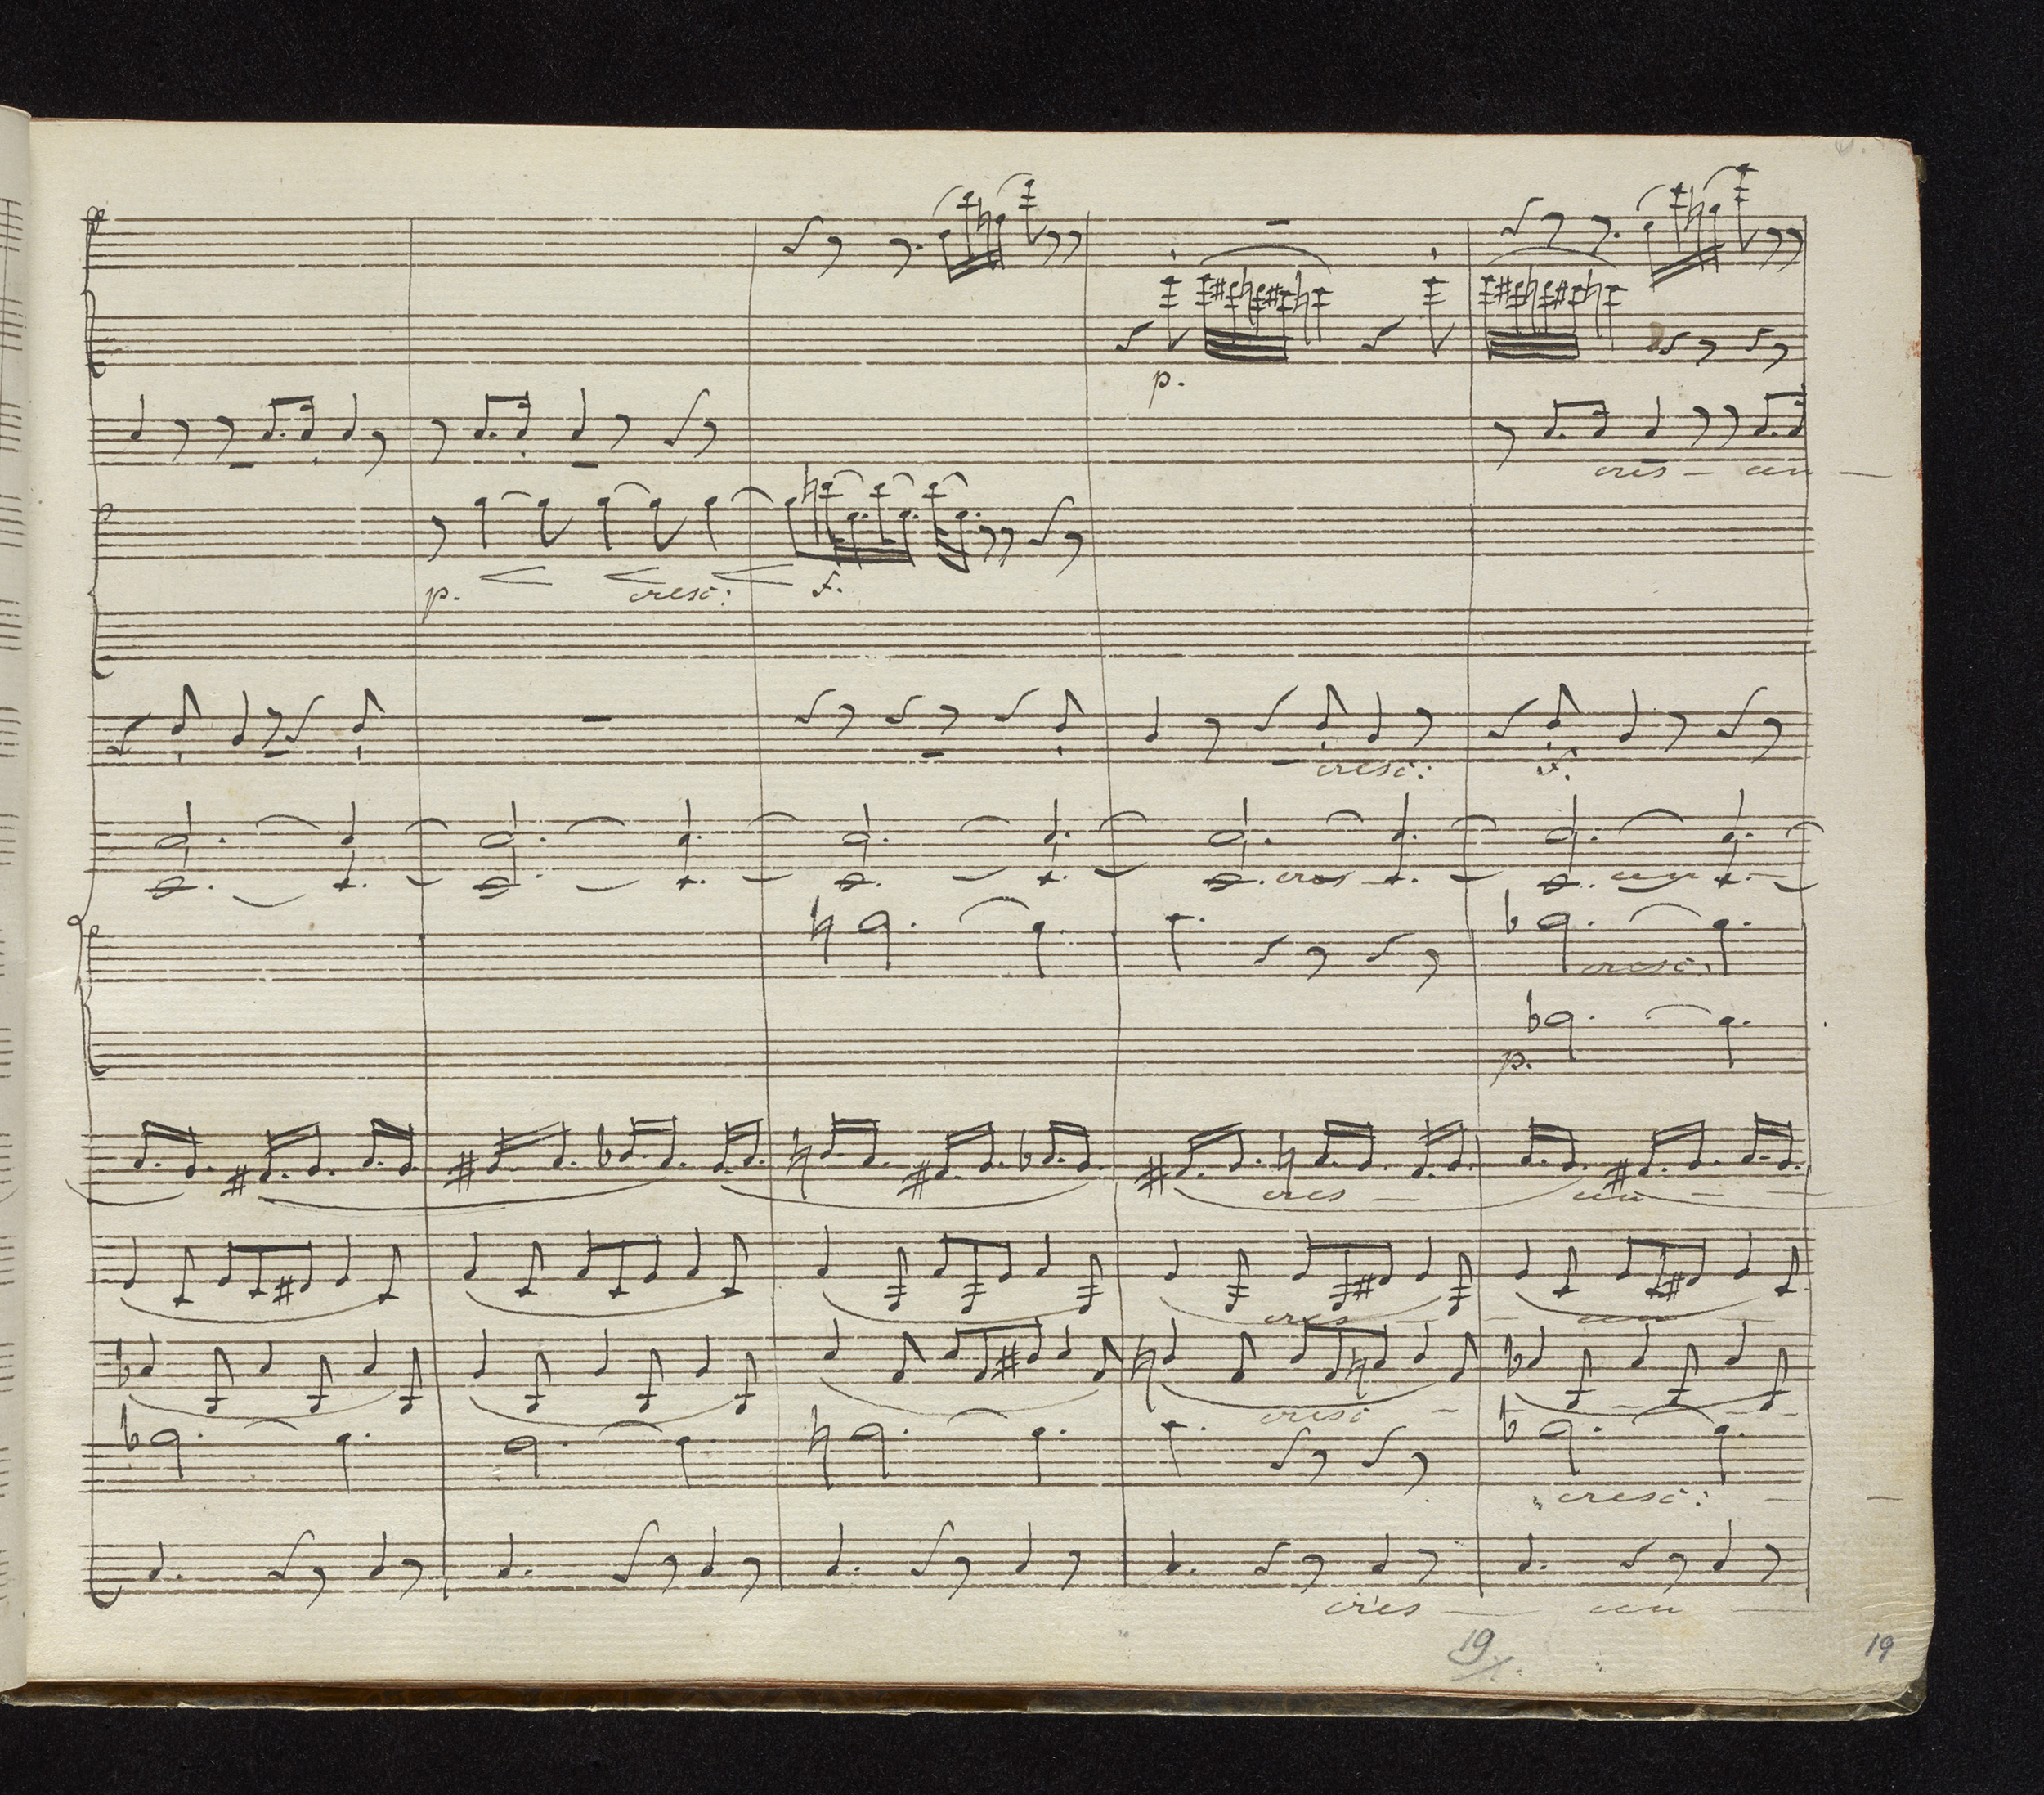 p.
cres – cen –
p. cresc: f.
cresc: f.
cres – cen –
cresc:
p.
cres – cen – –
cres – cen –
cresc – –
cresc: –
cres – cen –
19
19